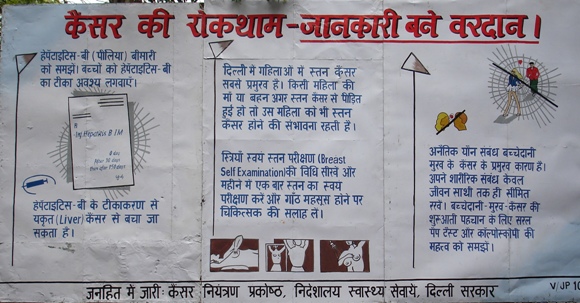 कैंसर की रोकथाम-जानकारी बने वरदान।
हेपेटाइटिस-बी (पीलिया) बीमारी
को समझें। बच्चों को हेपेटाइटिस-बी
का टीका अवश्य लगवाएं।
Inj. Hepatitis B 1M
हेपेटाइटिस-बी के टीकाकरण से
यकृत (Liver) कैंसर से बचा जा
सकता है।
दिल्ली में महिलाओं में स्तन कैंसर
सबसे प्रमुख है। किसी महिला की
मां या बहन अगर स्तन कैंसर से पीड़ित
हुई हो तो उस महिला को भी स्तन
कैंसर होने की संभावना रहती है।
स्त्रियाँ स्वयं स्तन परीक्षण (Breast
Self Examination) की विधि सीखें और
महीने में एक बार स्तन का स्वयं
परीक्षण करें और गाँठ महसूस होने पर
चिकित्सक की सलाह लें।
अनैतिक यौन संबंध बच्चेदानी
मुख के कैंसर के प्रमुख कारण है।
अपने शारीरिक संबंध केवल
जीवन साथी तक ही सीमित
रखें। बच्चेदानी-मुख-कैंसर की
शुरूआती पहचान के लिए सरल
पैप टैस्ट और काल्पोस्कोपी की
महत्व को समझें।
जनहित में जारी: कैंसर नियंत्रण प्रकोष्ठ, निदेशालय स्वास्थ्य सेवायें, दिल्ली सरकार
V/JP 10